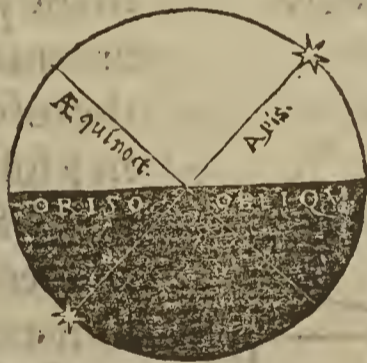 Æquinoct.
Axis.
ORIZO OBLIQV